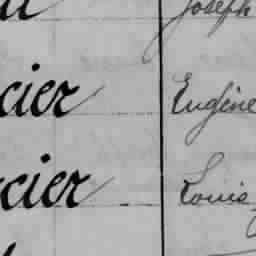 Joseph
cier Eugène
cier Louis